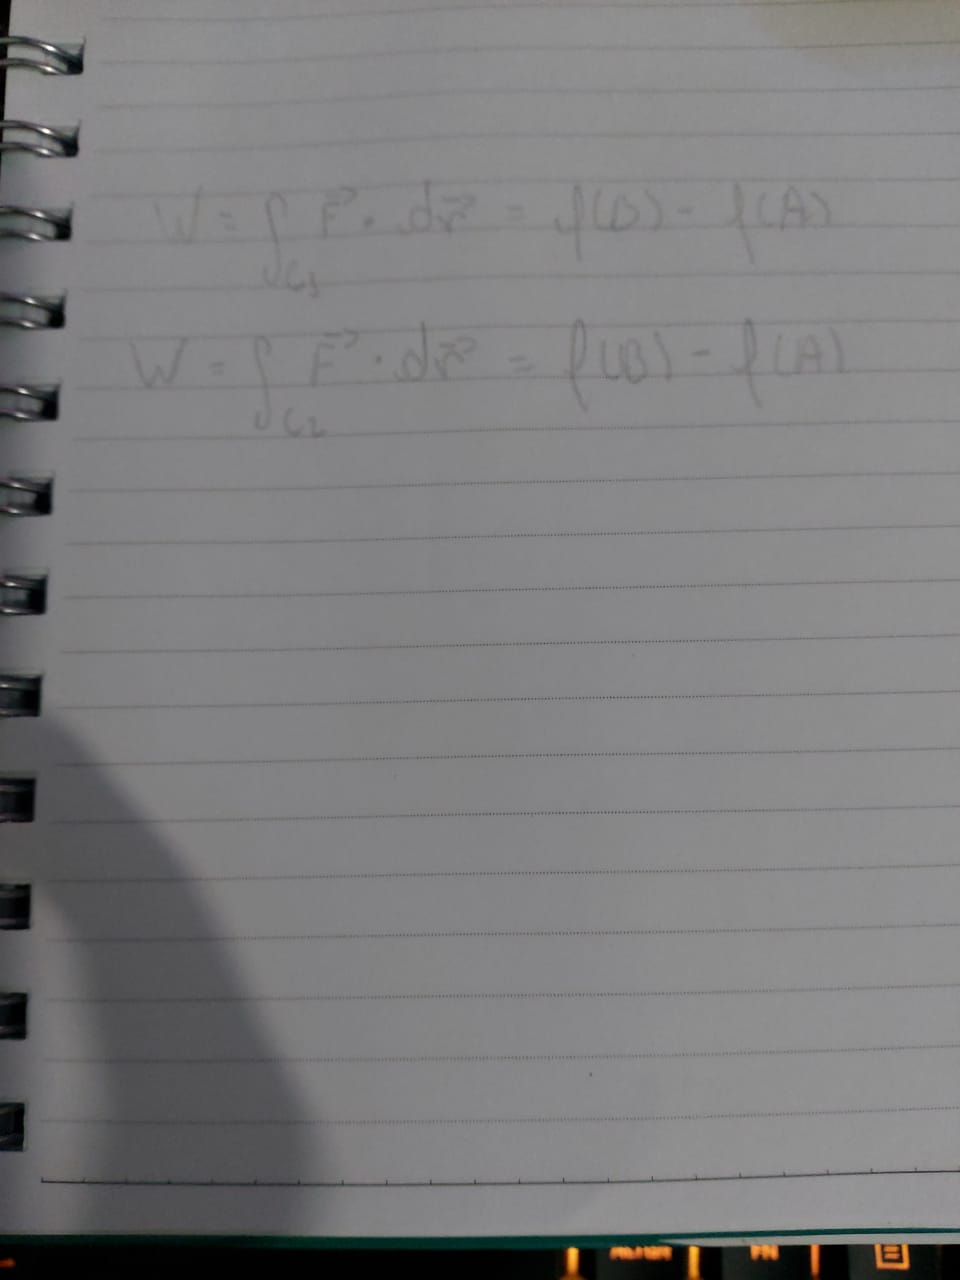 W = ∫_{C1} F⃗ · dr⃗ = f(B) - f(A)
W = ∫_{C2} F⃗ · dr⃗ = f(B) - f(A)
FN